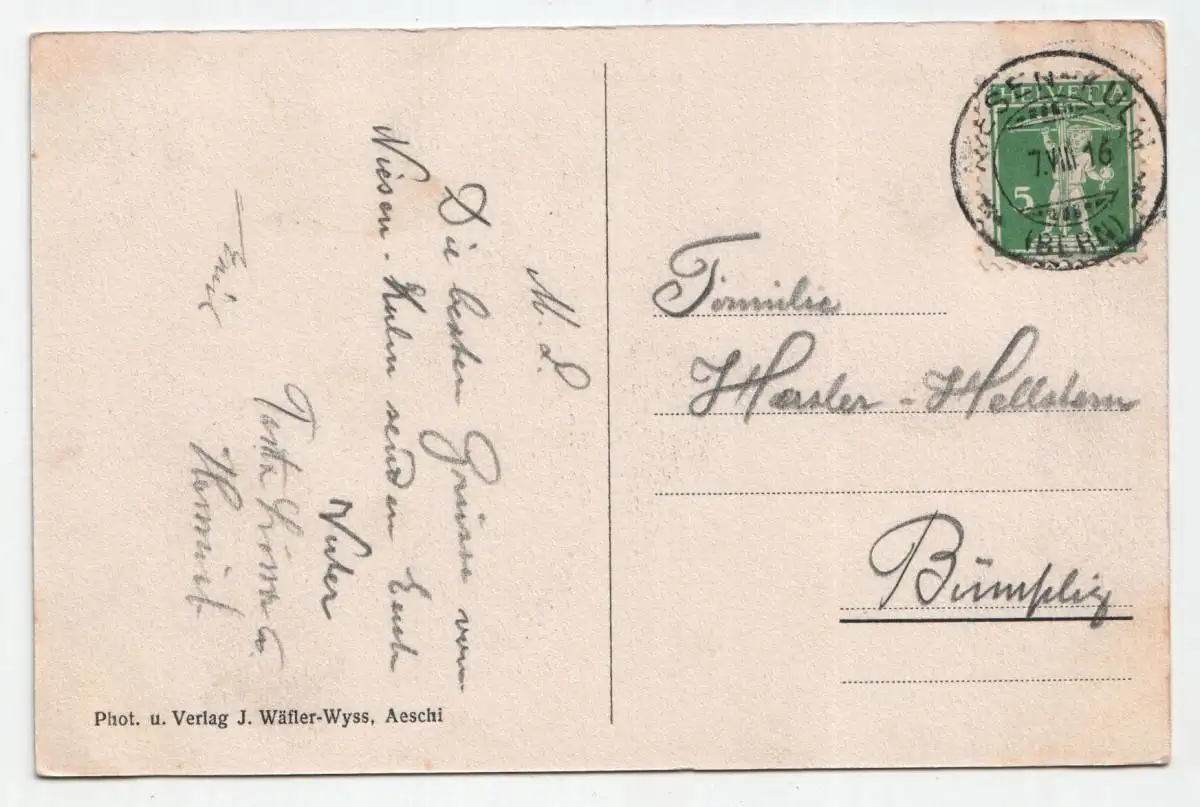 M. L.
Die besten Grüsse vom
Niesen-Kulm senden Euch
Vater
Tante
— Emil
Familie
Hasler-Hellstern
Bümpliz
HELVETIA
5
NIESEN-KULM
7.VIII.16
(BERN)
Phot. u. Verlag J. Wäfler-Wyss, Aeschi